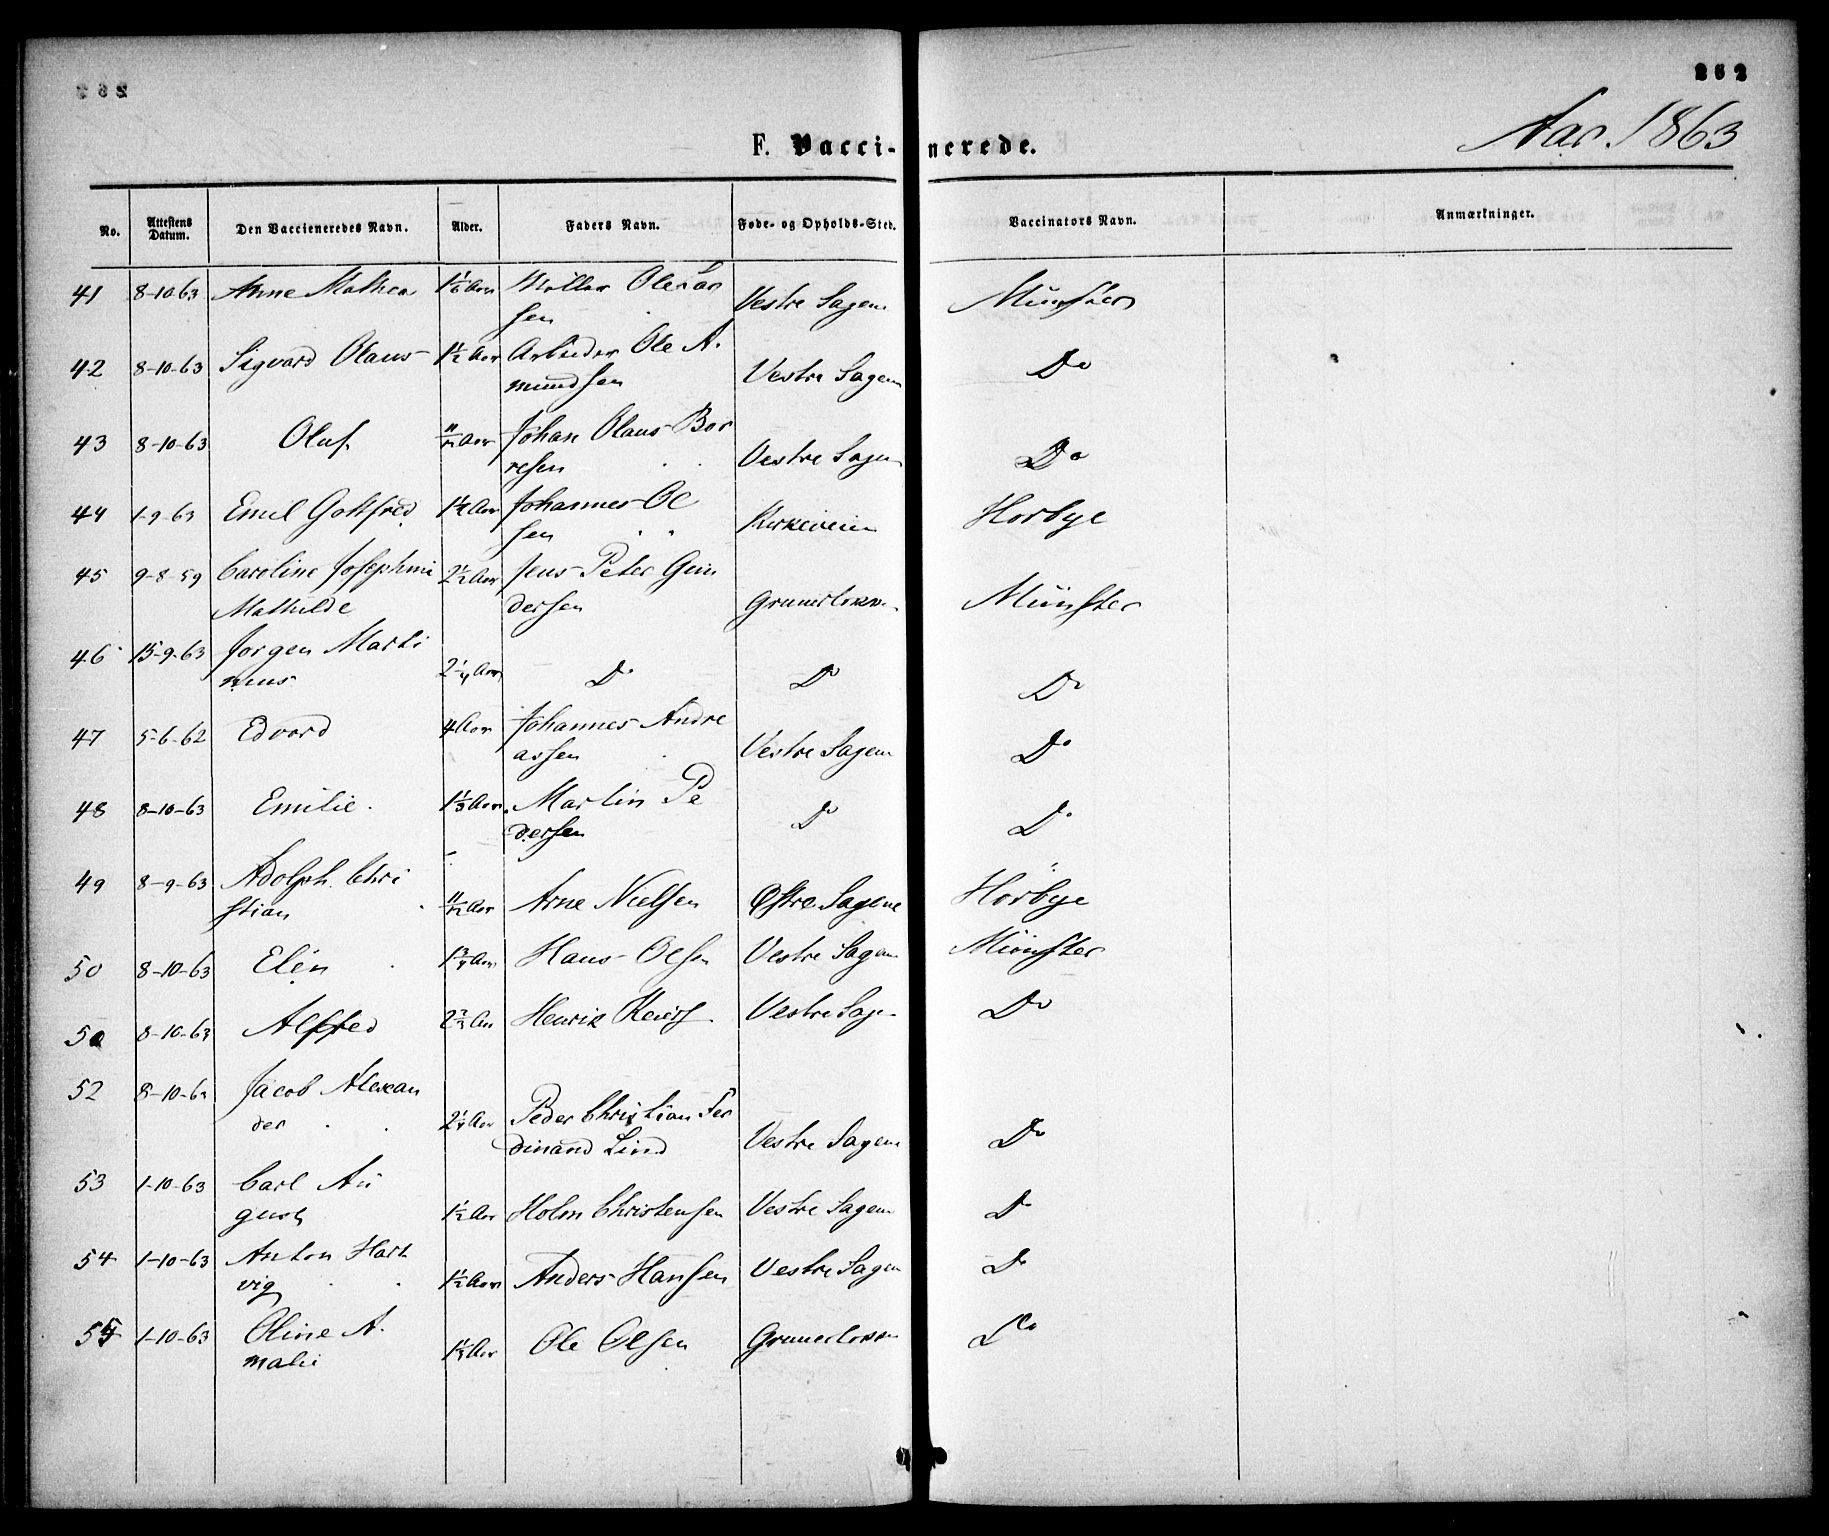 262
F. Vaccinerede.
Aar 1863
No. Attestens Datum. Den Vaccieneredes Navn. Alder. Faders Navn. Føde- og Opholds-Sted. Vaccinators Navn. Anmærkninger.
41 8-10-63 Anne Mathea 1 1/6 Aar Møller Ole Lar
sen Vestre Sagene Münster
42 8-10-63 Sigvard Olaus 1 1/2 Aar Arbeider Ole A.
mundsen Vestre Sagene Do
43 8-10-63 Oluf 11/12 Aar Johan Olaus Bor
resen Vestre Sagen Do
44 1-9-63 Emil Gottfred Aar Johannes Ol
sen Kirkeveien Horbye
45 9-8-59 Caroline Josephine 2 1/2 Aar Jens Peter Gun
Mathilde dersen Grunerløkken Münster
46 15-9-63 Jørgen Marti
nius 2 1/4 Aar Do Do Do
47 5-6-62 Edvard 4 Aar Johannes Andre
assen Vestre Sagene Do
48 8-10-63 Emilie 1 1/3 Aar Martin Pe
dersen Do Do
49 8-9-63 Adolph Chri
stian 11/12 Aar Arne Nielsen Østre Sagene Hørbye
50 8-10-63 Elen 1 3/4 Aar Hans Olsen Vestre Sagene Münster
8-10-63 Alfred 2 Aar Henrik Vestre Sage Do
52 8-10-63 Jacob Alexan
der 2 1/4 Aar Peder Christian Fer
dinand Lind Vestre Sagene Do
53 1-10-63 Carl Au
gust 1 1/2 Aar Holm Christensen Vestre Sagene Do
54 1-10-63 Anton Hart
vig 1 1/2 Aar Anders Hansen Vestre Sagen Do
55 1-10-63 Oline A.
malie 1 1/3 Aar Ole Olsen Grunerløkken Do